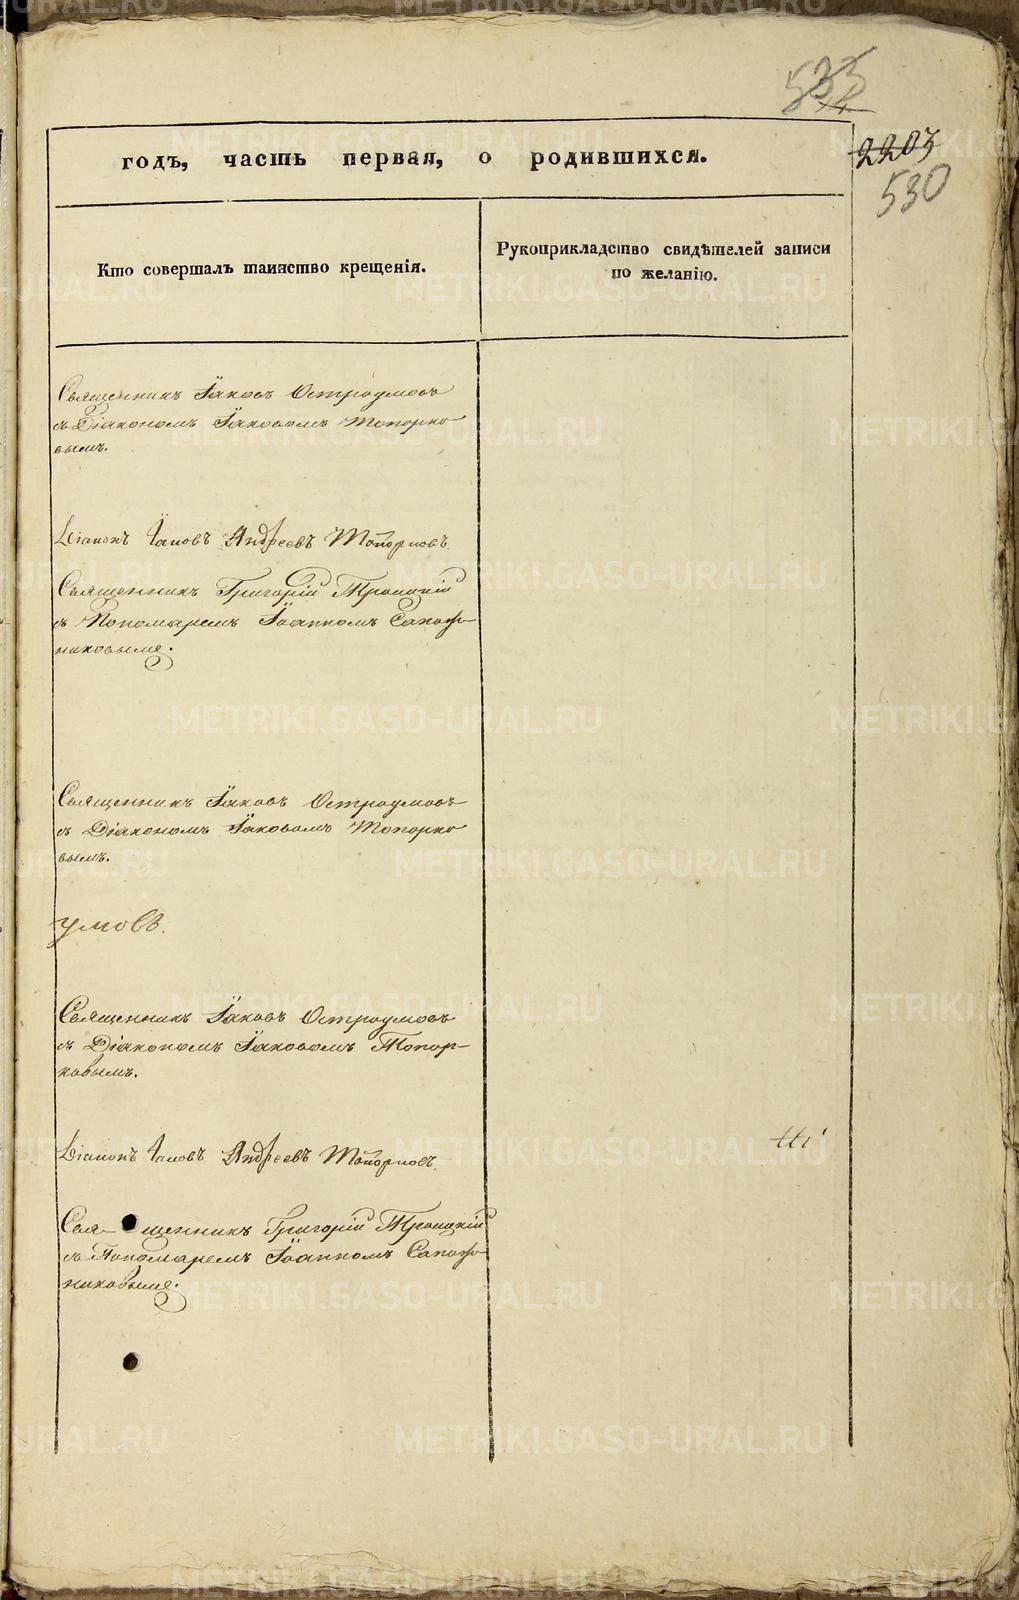 530
2203
годъ, часть первая, о родившихся.
Кто совершалъ таинство крещенія.
Рукоприкладство свидѣтелей записи
по желанію.
Священникъ Іаковъ Остроумовъ
съ Діакономъ Іаковомъ Топорко
вымъ.
Діаконъ Іаковъ Андреевъ Топорковъ.
Священникъ Григорій Троицкій
съ Пономаремъ Іоанномъ Сапож
никовымъ.
Священникъ Іаковъ Остроумовъ
съ Діакономъ Іаковомъ Топорко
вымъ.
умовъ.
Священникъ Іаковъ Остроумовъ
съ Діакономъ Іаковомъ Топор-
ковымъ.
Діаконъ Іаковъ Андреевъ Топорковъ.
Свя- щенникъ Григорій Троицкій
съ Пономаремъ Іоанномъ Сапож
никовымъ.
METRIKI.GASO-URAL.RU